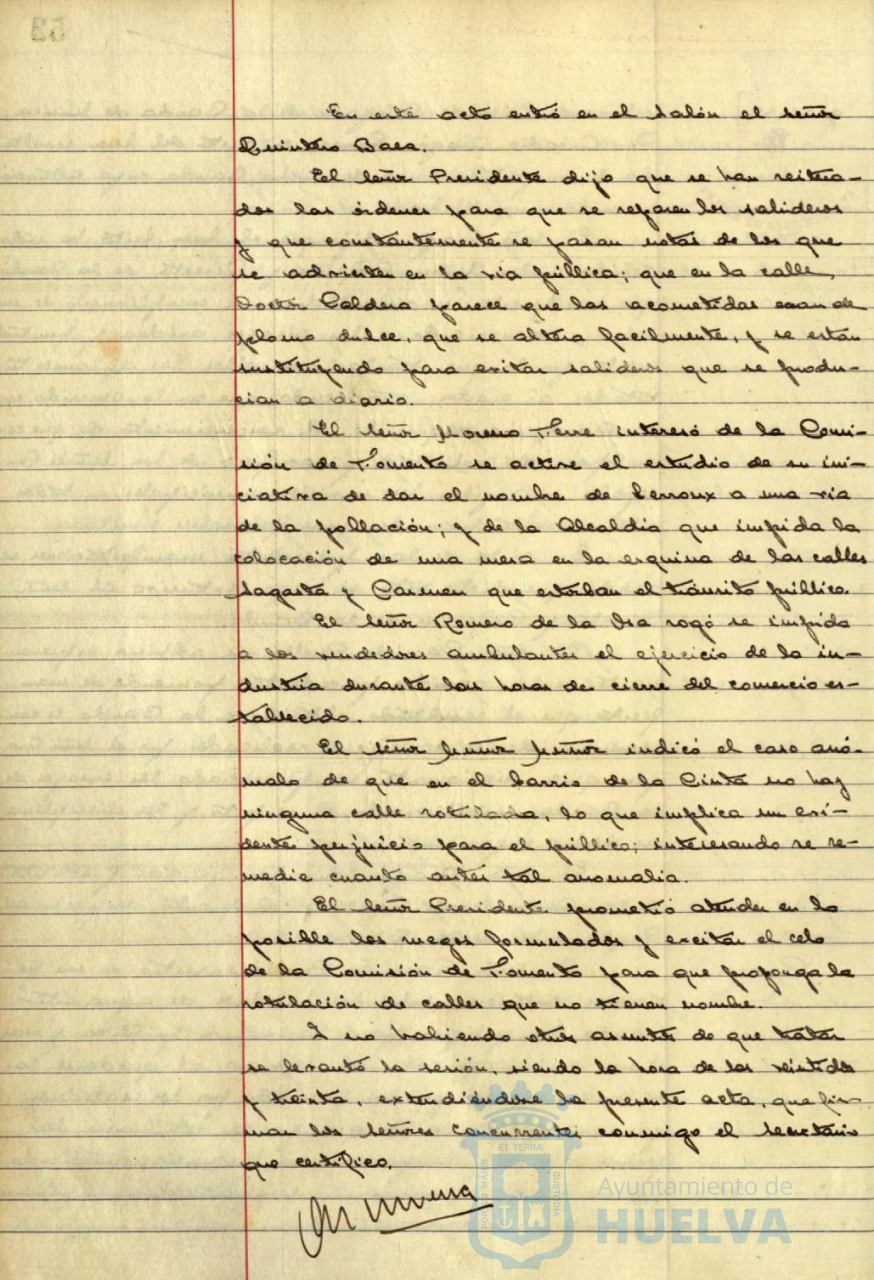 En este acto entró en el salón el señor
Quintero Baez.
El señor Presidente dijo que se han reitera-
dos las órdenes para que se reparen los salideros
y que constantemente se pasan notas de los que
se advierten en la vía pública; que en la calle
Doctor Caldera parece que las acometidas eran de
plomo dulce, que se altera facilmente, y se están
sustituyendo para evitar salideros que se produ-
cian a diario.
El señor Moreno Ferre interesó de la Comi-
sión de Fomento se active el estudio de su ini-
ciativa de dar el nombre de Lerroux a una via
de la población; y de la Alcaldía que impida la
colocación de una mesa en la esquina de las calles
Sagasta y Carmen que estorban el tránsito público.
El señor Romero de la Osa rogó se impida
a los vendedores ambulantes el ejercicio de la in-
dustria durante las horas de cierre del comercio es-
tablecido.
El señor Muñoz Muñoz indicó el caso anó-
malo de que en el barrio de la Cinta no hay
ninguna calle rotulada, lo que implica un evi-
dente perjuicio para el público; interesando se re-
medie cuanto antes tal anomalia.
El señor Presidente prometió atender en lo
posible los ruegos formulados y excitar el celo
de la Comisión de Fomento para que proponga la
rotulación de calles que no tienen nombre.
Y no habiendo otros asuntos de que tratar
se levantó la sesión, siendo la hora de las veintidos
y treinta, extendiéndose la presente acta, que fir-
man los señores concurrentes conmigo el Secretario
que certifico.
Ayuntamiento de
HUELVA